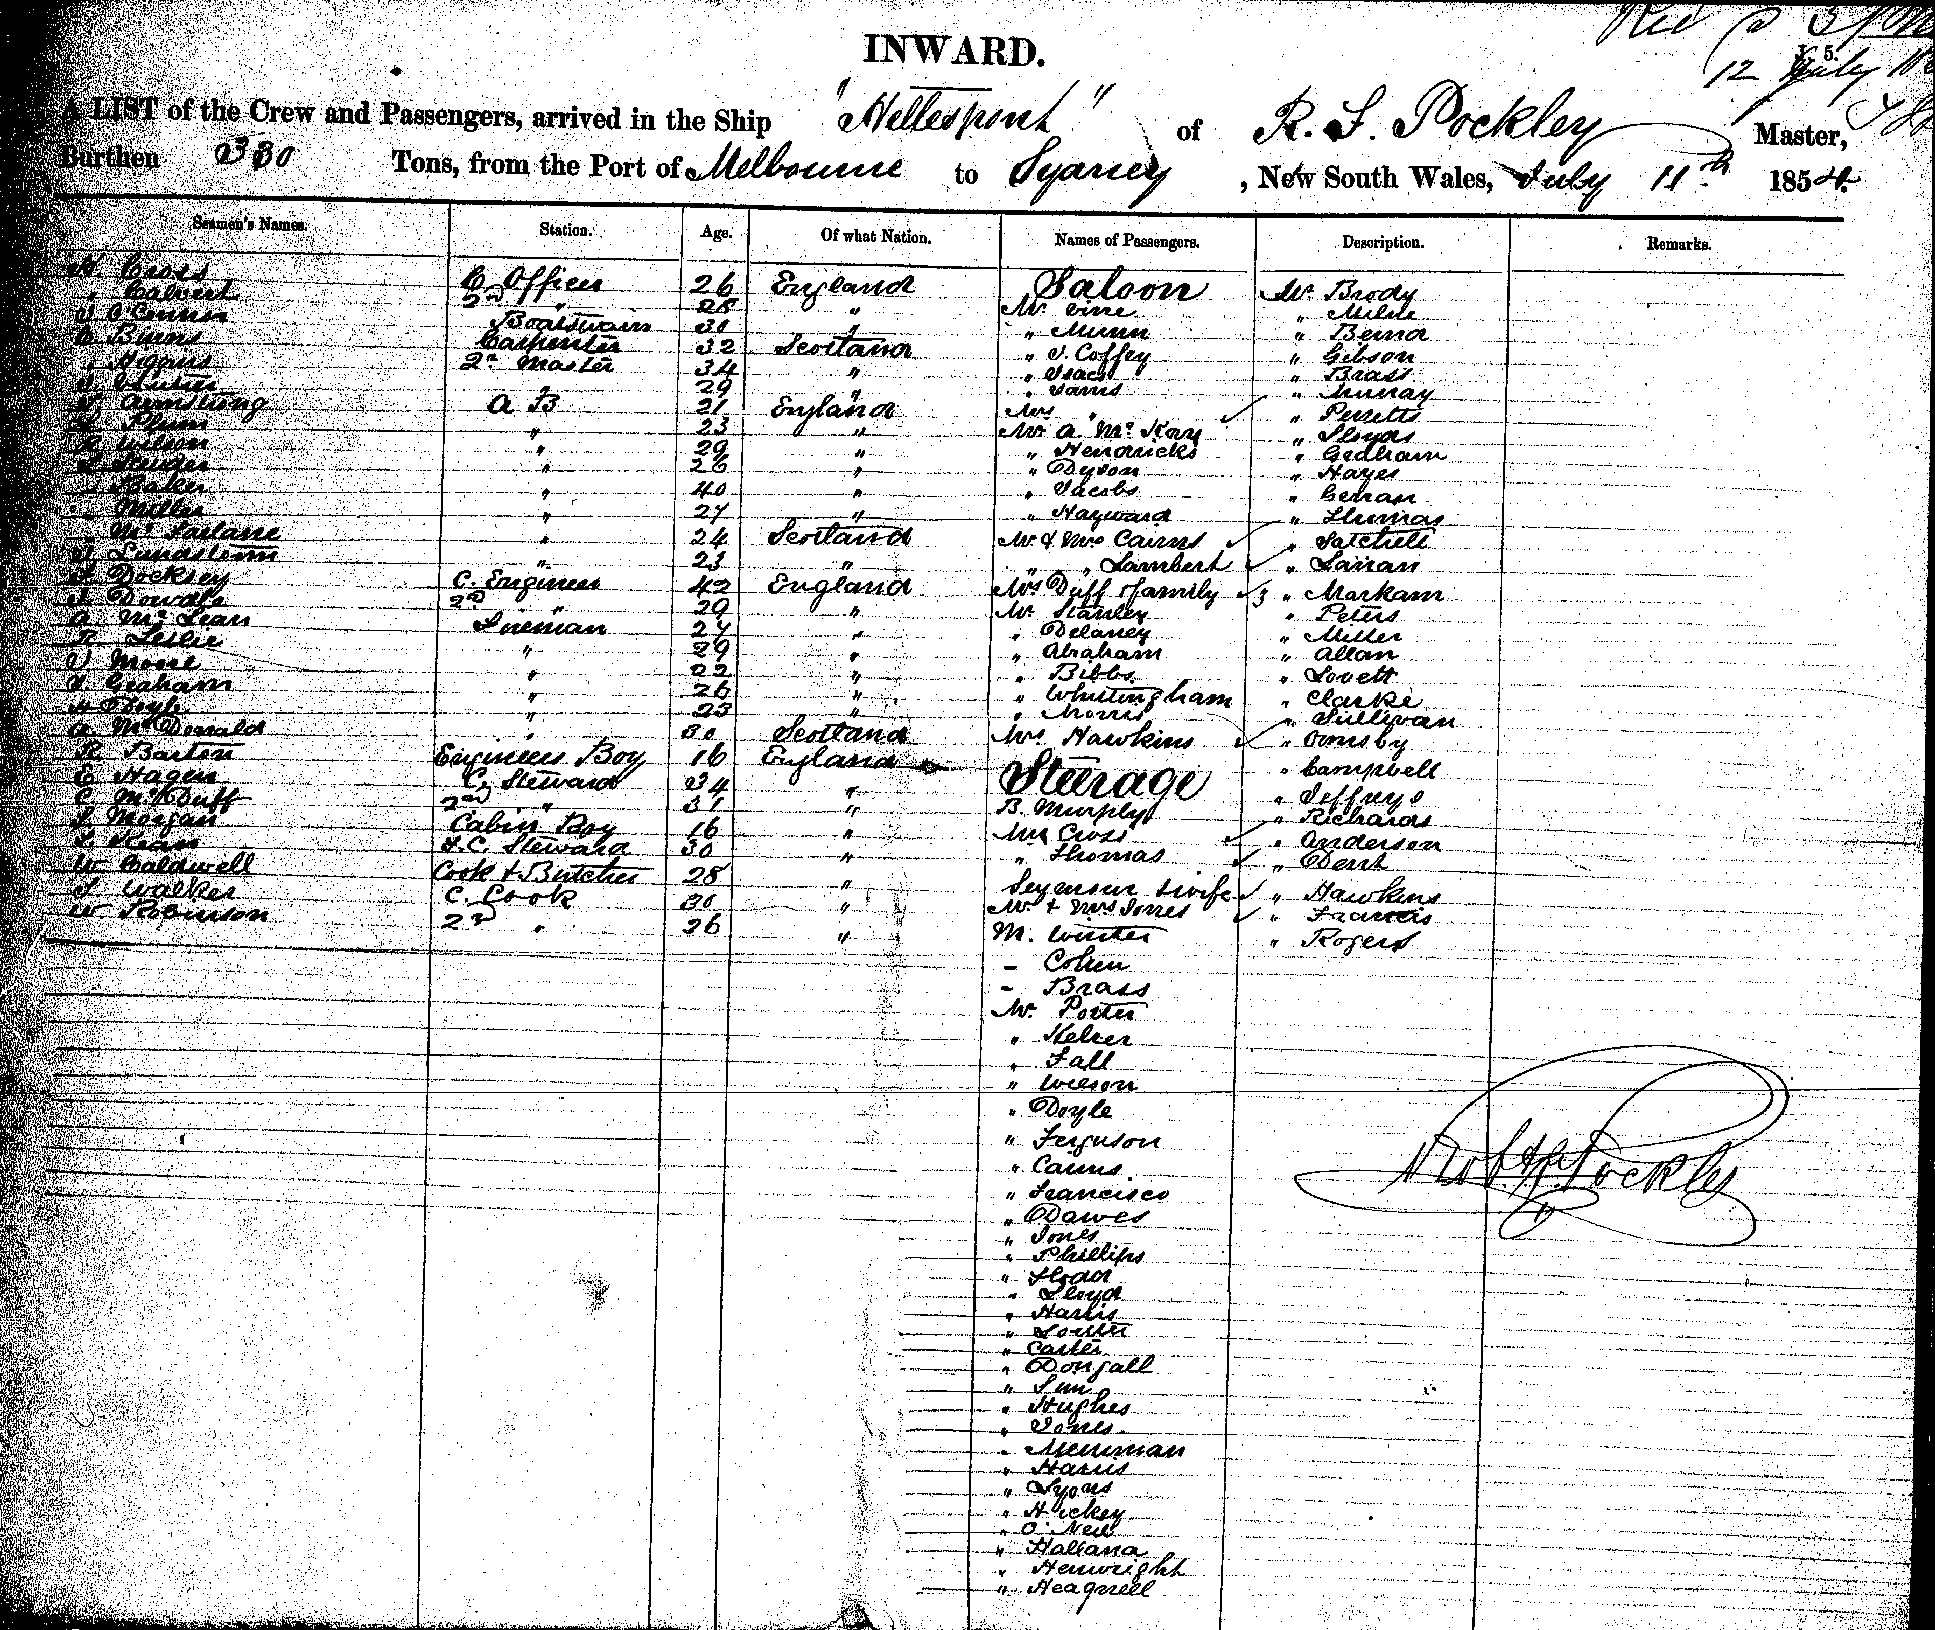 INWARD.
12 July
A LIST of the Crew and Passengers, arrived in the Ship "Hellespont" of R. F. Pockley Master,
Burthen 330 Tons, from the Port of Melbourne to Sydney, New South Wales, July 11th 1854.
Seamen's Names. Station. Age. Of what Nation. Names of Passengers. Description. Remarks.
Cross C. Officer 26 England Saloon Mr. Brody
Calvert 2nd " 28 " Mr. Vine " Milne
O'Connor Boatswain 30 " " Munn "
Burns Carpenter 32 Scotland " J. Coffey " Gibson
Higgins 2r Master 34 " " Isaacs " Brass
" 29 " " Jams " Murray
Armstrong A B 21 England Mrs " " Perretts
Plum " 23 " Mr A McKay " Lloyds
Wilson " 29 " " Hendricks " Graham
" 26 " " Dyson " Hayes
Baker " 40 " " Jacobs "
Miller " 27 " " Hayward " Thomas
McFarlane " 24 Scotland Mr & Mrs Cairns " Satchell
Lundstrom " 23 " " " Lambert "
Docksey C. Engineer 42 England Mrs Duff & family 3 " Markam
2nd " 29 " Mr Stanley " Peters
A McLean Fireman 27 " " Delaney " Miller
R Leslie " 29 " " Abraham " Allan
" 22 " " Bibbs " Lovett
Graham " 26 " " Whittingham " Clarke
Doyle " 23 " " Morris " Sullivan
A McDonald " 30 Scotland Mrs Hawkins " Ormsby
R Barton Engineers Boy 16 England Steerage " Campbell
E Hagen C. Steward 34 " " Jeffreys
C McDuff 2nd " 31 " B. Murphy " Richards
Morgan Cabin Boy 16 " Mrs Cross " Anderson
Kean F.C. Steward 30 " " Thomas " Dent
W Caldwell Cook & Butcher 28 " Seymour & wife " Hawkins
Walker C. Cook 30 " Mr & Mrs Jones " Francis
W Robinson 2nd " 26 " M. Winter " Rogers
- Cohen
- Brass
Mr. Porter
"
" Fall
" Wilson
" Doyle
" Ferguson
" Cairns
" Francisco
" Dawes
" Jones
" Phillips
"
" Lloyd
" Harris
"
" Carter
" Dougall
"
" Hughes
" Jones
" Merriman
" Harris
" Lyons
" Hickey
" O'Neil
" Halland
" Henwright
" Heagnell
Robt F Pockley